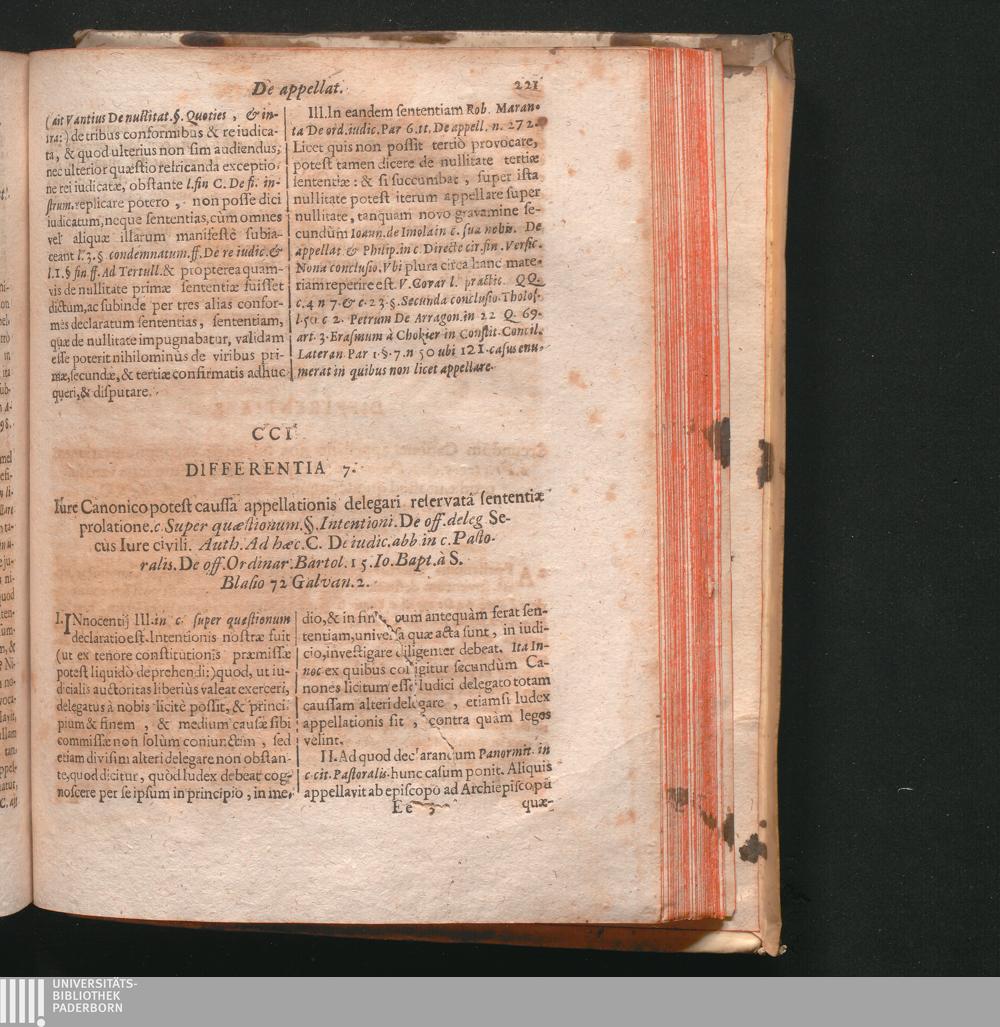 De appellat.
221
(ait Vantius De nullitat. §. Quoties, & in-
fra:) de tribus conformibus & re iudica-
ta, & quod ulterius non sim audiendus,
nec ulterior quæstio refricanda exceptio-
ne rei iudicatæ, obstante l. fin C. De fi. in-
strum. replicare potero, non posse dici
iudicatum, neque sententias, cùm omnes
vel aliquæ illarum manifestè subia-
ceant l. 3. § condemnatum. ff. De re iudic. &
l. 1. § fin ff. Ad Tertull. & propterea quam-
vis de nullitate primæ sententiæ fuisset
dictum, ac subinde per tres alias confor-
mes declaratum sententias, sententiam,
quæ de nullitate impugnabatur, validam
esse poterit nihilominus de viribus pri-
mæ, secundæ, & tertiæ confirmatis adhuc
queri, & disputare.
III. In eandem sententiam Rob. Maran-
ta De ord. iudic. Par 6. tt. De appell. n. 272.
Licet quis non possit tertiò provocare,
potest tamen dicere de nullitate tertiæ
sententiæ: & si succumbat, super ista
nullitate potest iterum appellare super
nullitate, tanquam novo gravamine se-
cundùm Ioann. de Imola in c. sua nobis. De
appellat & Philip. in c. Directe cir. fin. Versic.
Nona conclusio. Vbi plura circa hanc mate-
riam reperire est. V. Covar l. practic. QQ.
c. 4 n 7. & c. 23. §. Secunda conclusio. Tholos.
l. 50 c 2. Petrum De Arragon. in 22 Q. 69.
art. 3. Erasmum à Chokier in Constit. Concil.
Lateran Par 1. §. 7. n 50 ubi 121. casus enu-
merat in quibus non licet appellare.
CCI
DIFFERENTIA 7.
Iure Canonico potest caussa appellationis delegari reservatâ sententiæ
prolatione. c Super quæstionum. §. Intentioni. De off. deleg Se-
cus Iure civili. Auth. Ad hæc. C. De iudic. abb. in c. Pasto-
ralis. De off. Ordinar. Bartol. 15. Io. Bapt. à S.
Blasio 72 Galvan. 2.
I. INnocentij III. in c. super quæstionum
declaratio est. Intentionis nostræ fuit
(ut ex tenore constitutionis præmissæ
potest liquidò deprehendi:) quod, ut iu-
dicialis auctoritas liberiùs valeat exerceri,
delegatus à nobis licitè possit, & princi-
pium & finem, & medium causæ sibi
commissæ non solùm coniunctim, sed
etiam divisim alteri delegare non obstan-
te, quod dicitur, quòd Iudex debeat cog-
noscere per se ipsum in principio, in me-
dio, & in fine, cum antequàm ferat sen-
tentiam, universa quæ acta sunt, in iudi-
cio, investigare diligenter debeat. Ita In-
noc ex quibus colligitur secundùm Ca-
nones licitum esse Iudici delegato totam
caussam alteri delegare, etiamsi Iudex
appellationis sit, contra quàm leges
velint.
II. Ad quod declarandum Panormit. in
c. cit. Pastoralis. hunc casum ponit. Aliquis
appellavit ab episcopo ad Archiepiscopū
Ee 3
quæ-
UNIVERSITÄTS-
BIBLIOTHEK
PADERBORN